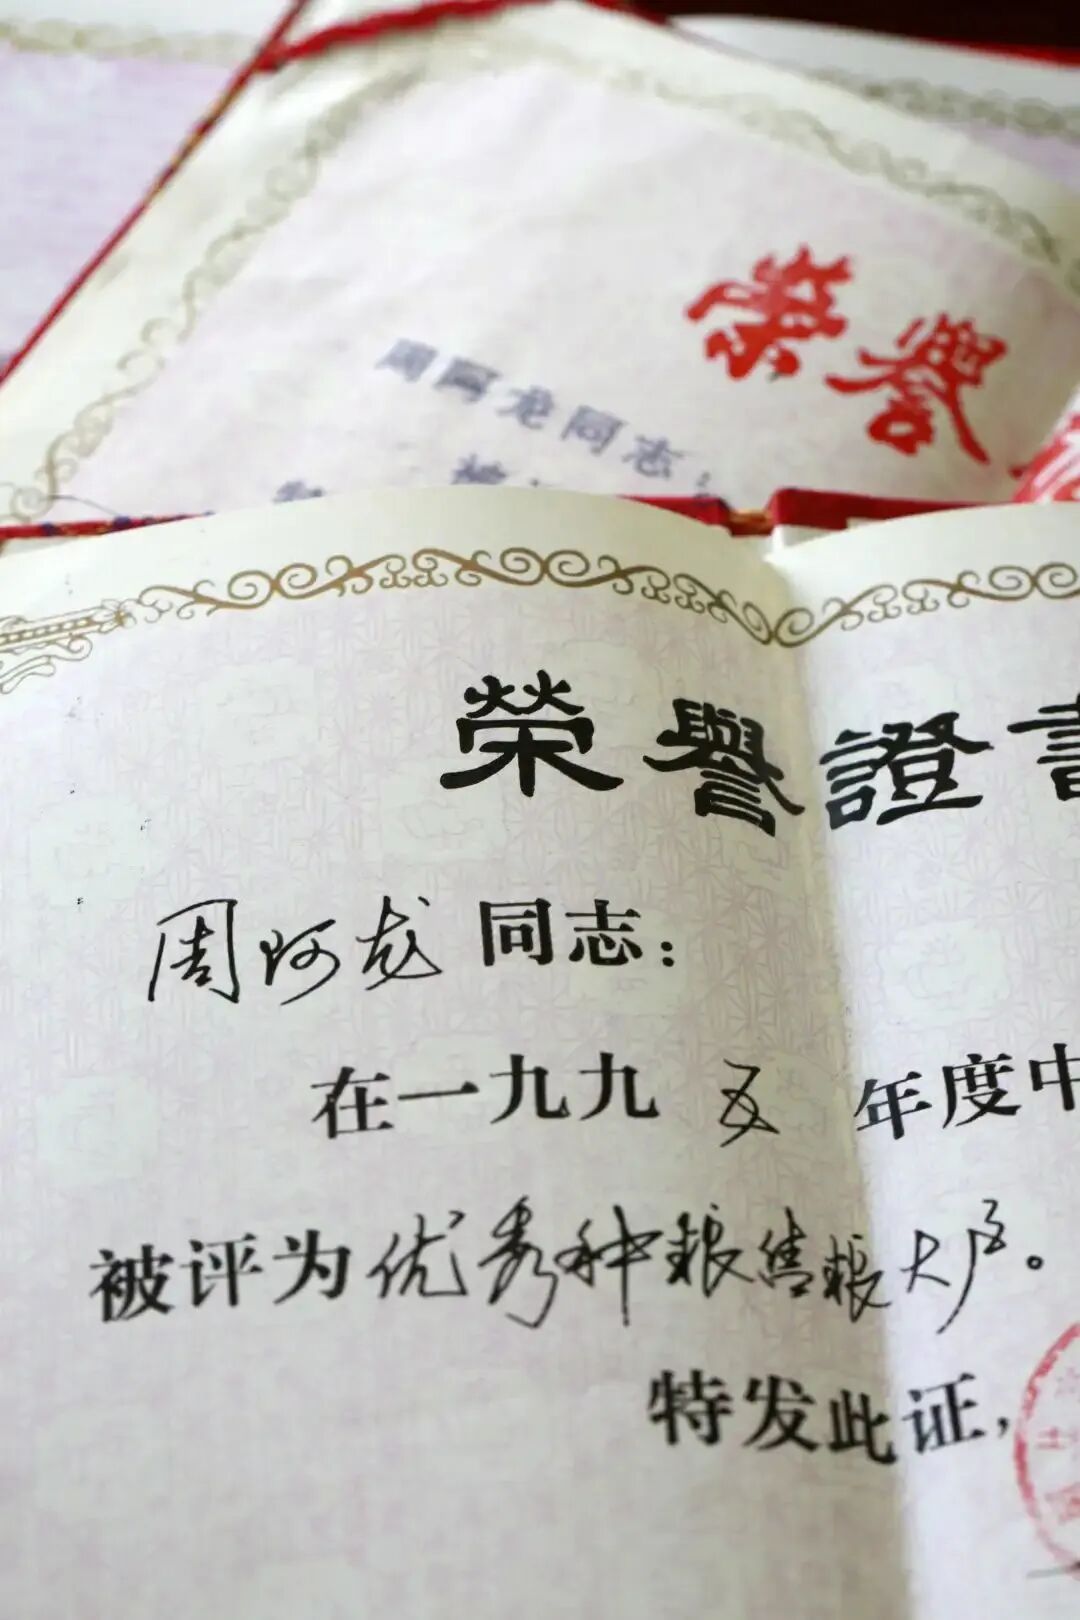 荣誉
周阿龙同志：
被
榮譽證書
周阿龙同志：
在一九九五年度中
被评为优秀种粮售粮大户。
特发此证，